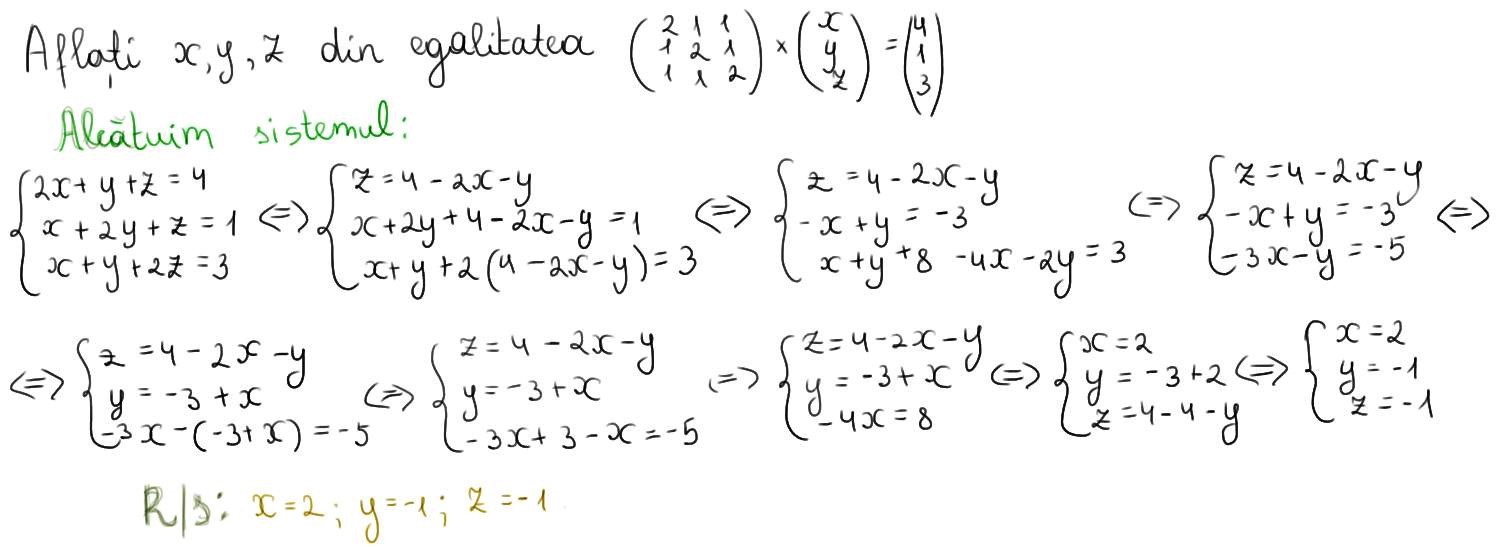 Aflați x, y, z din egalitatea (2 1 1 / 1 2 1 / 1 1 2) × (x / y / z) = (4 / 1 / 3)
Alcătuim sistemul:
{2x + y + z = 4 / x + 2y + z = 1 / x + y + 2z = 3 <=> {z = 4 - 2x - y / x + 2y + 4 - 2x - y = 1 / x + y + 2(4 - 2x - y) = 3 <=> {z = 4 - 2x - y / -x + y = -3 / x + y + 8 - 4x - 2y = 3 <=> {z = 4 - 2x - y / -x + y = -3 / -3x - y = -5 <=>
<=> {z = 4 - 2x - y / y = -3 + x / -3x - (-3 + x) = -5 <=> {z = 4 - 2x - y / y = -3 + x / -3x + 3 - x = -5 <=> {z = 4 - 2x - y / y = -3 + x / -4x = 8 <=> {x = 2 / y = -3 + 2 / z = 4 - 4 - y <=> {x = 2 / y = -1 / z = -1
R/s: x = 2; y = -1; z = -1